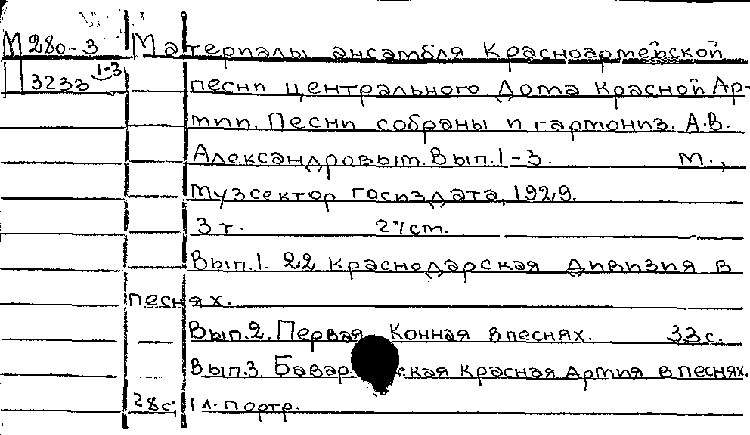 М 280-3 Материалы ансамбля Красноармейской
3233 1-3 песни Центрального Дома Красной Ар-
мии. Песни собраны и гармониз. А.В.
Александровым. Вып. 1-3. М.,
Музсектор Госиздата, 1929.
3 т. 27 cm.
Вып.1. 22 Краснодарская дивизия в
песнях.
Вып.2. Первая Конная в песнях. 33 с.
Вып.3. Красная Армия в песнях.
28 с. 1 л. портр.